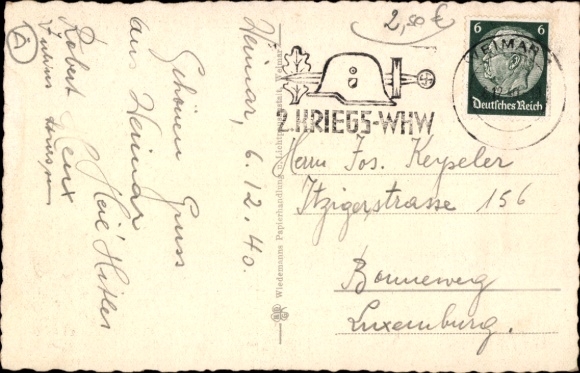 2,50 €
Weimar, 6.12.40.
Schönen Gruss
aus Weimar
Heil Hitler
Robert
A
Wiedemanns Papierhandlung
2.KRIEGS-WHW
WEIMAR
6 6
Deutsches Reich
Herrn Jos. Keypeler
Itzigerstrasse 156
Bonneweg
Luxemburg.